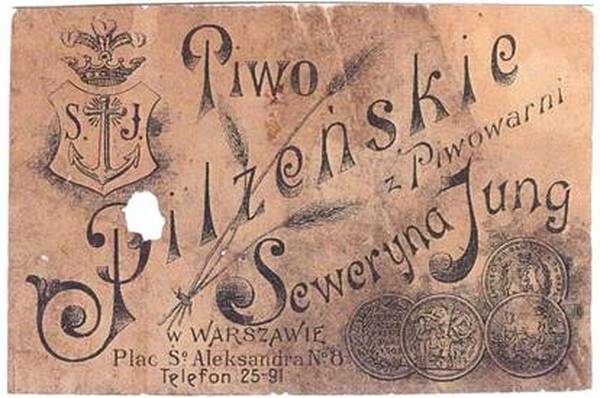 S. J.
Piwo
Pilzeńskie
z Piwowarni
Seweryna Jung
w WARSZAWIE
Plac Sº Aleksandra Nº 8
Telefon 25-91